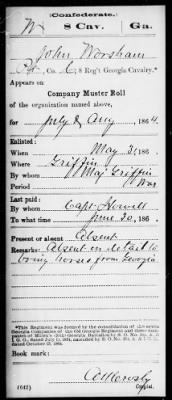 (Confederate.)
W 8 Cav. Ga.
John Worsham
Pvt, Co. C, 8 Reg't Georgia Cavalry.*
Appears on
Company Muster Roll
of the organization named above,
for July & Aug, 1864.
Enlisted:
When May 3, 186 .
Where Griffin
By whom Maj Griffin
Period War
Last paid:
By whom Capt Howell
To what time June 30, 186 .
Present or absent Absent
Remarks: Absent on detail to
bring horses from Georgia
*This Regiment was formed by the consolidation of the seven
Georgia Companies of the
Book mark:
(642)
Copyist.